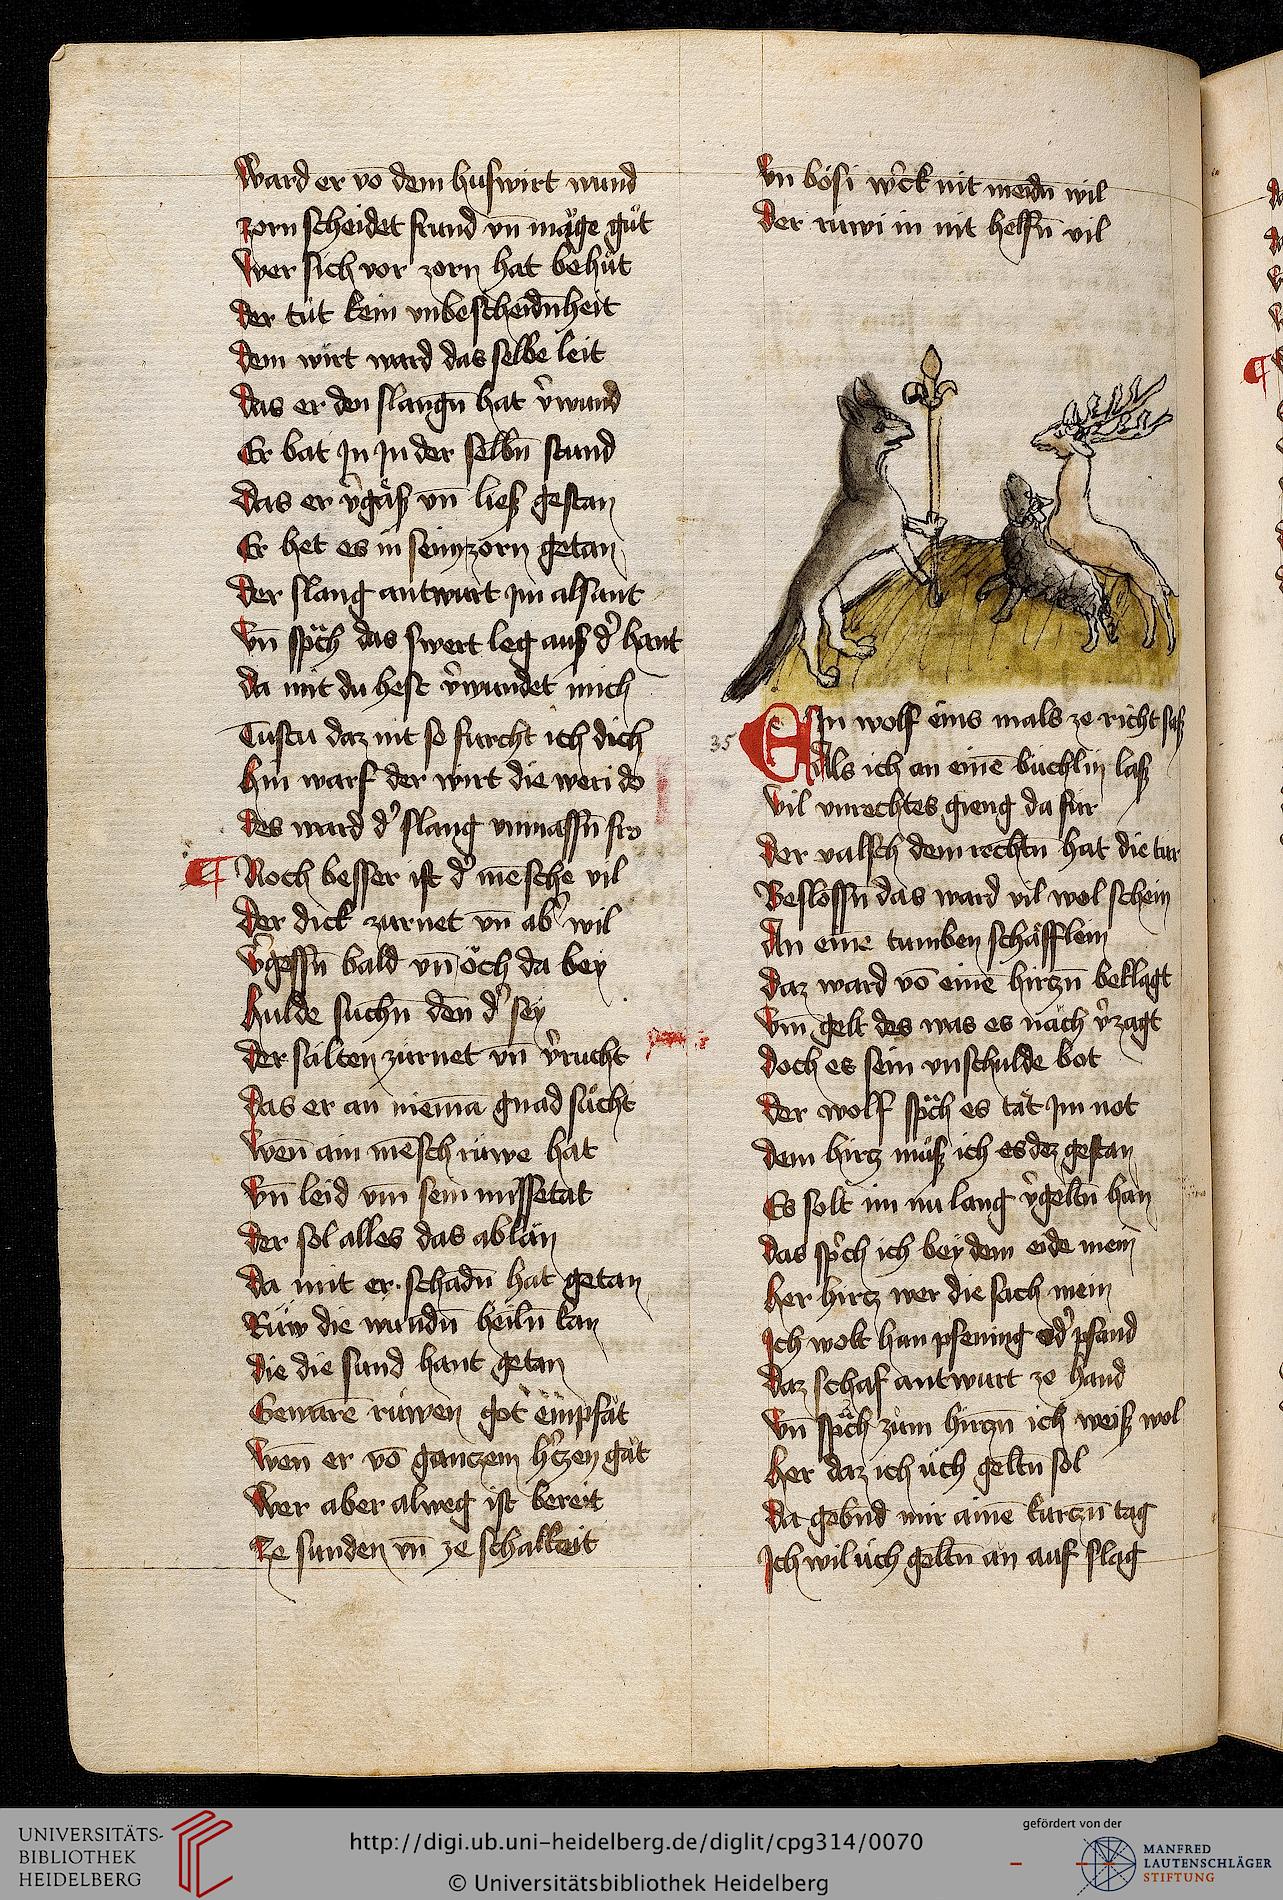 Ward er vō dem huswirt wund
zorn scheidet frund vn̄ mǎge gůt
Wer sich vor zorn hat behůt
der tůt kein vnbescheidn̄heit
dem wirt ward das selbe leit
das er den slangn̄ hat v̉wund
Er bat jn jn der selbn̄ stund
das er v̉gäß vn̄ ließ gestan
Er het es in seim zorn getan
der slang antwurt jm alsant
Vn̄ spͣch das swert leg auß d̉ hant
da mit du hest v̉wundet mich
Tustu daz nit so furcht ich dich
hin warf der wirt die weri do
des ward d̉ slang vnmassn̄ fro
Noch besser ist d̉ mēsche vil
der dick zurnet vn̄ ab̉ wil
v̉gessn̄ bald vn̄ öch da bey
hulde sůchn̄ den̄ d̉ sey
der sälten zurnet vn̄ v̉rucht
das er an niemā gnad sůcht
Wen̄ ain mēsch rüwe hat
Vn̄ leid vm̄ sein missetat
der sol alles das ablän
da mit er schadn̄ hat getan
Rüw die wundn̄ heiln̄ kan
die die sund hant getan
Gewarē rüwen got empfät
Wen̄ er vō ganczem h̉czen gät
Wer aber alweg ist bereit
Ze sunden vn̄ ze schalkeit
Vn̄ bösi w̉ck nit meidn̄ wil
der ruwi in nit helfn̄ vil
35
Ein wolf eins mals ze richt saß
Als ich an einē buchlin laß
Vil vnrechtes gieng da fur
der valsch dem rechtn̄ hat die tur
Beslossn̄ das ward vil wol schein
An eime tumben schäfflein
daz ward vō einē hirczn̄ beklagt
Vm̄ gelt des was es näch v̉zagt
doch es sein vnschulde bot
der wolf spͣch es tät jm not
dem hircz můß ich es dez gestan
Es solt im nu lang v̉geltn̄ han
das sp̉ch ich bey dem eide mein
her hircz wer die sach mein
Ich wolt han pfening od̉ pfand
daz schaf antwurt ze hand
Vn̄ spͣch zům hirczn̄ ich weiß wol
her daz ich üch geltn̄ sol
da gebnd mir ainē kurczn̄ tag
Ich wil üch geltn̄ an auf slag
UNIVERSITÄTS-
BIBLIOTHEK
HEIDELBERG
http://digi.ub.uni-heidelberg.de/diglit/cpg314/0070
© Universitätsbibliothek Heidelberg
gefördert von der
MANFRED
LAUTENSCHLÄGER
STIFTUNG